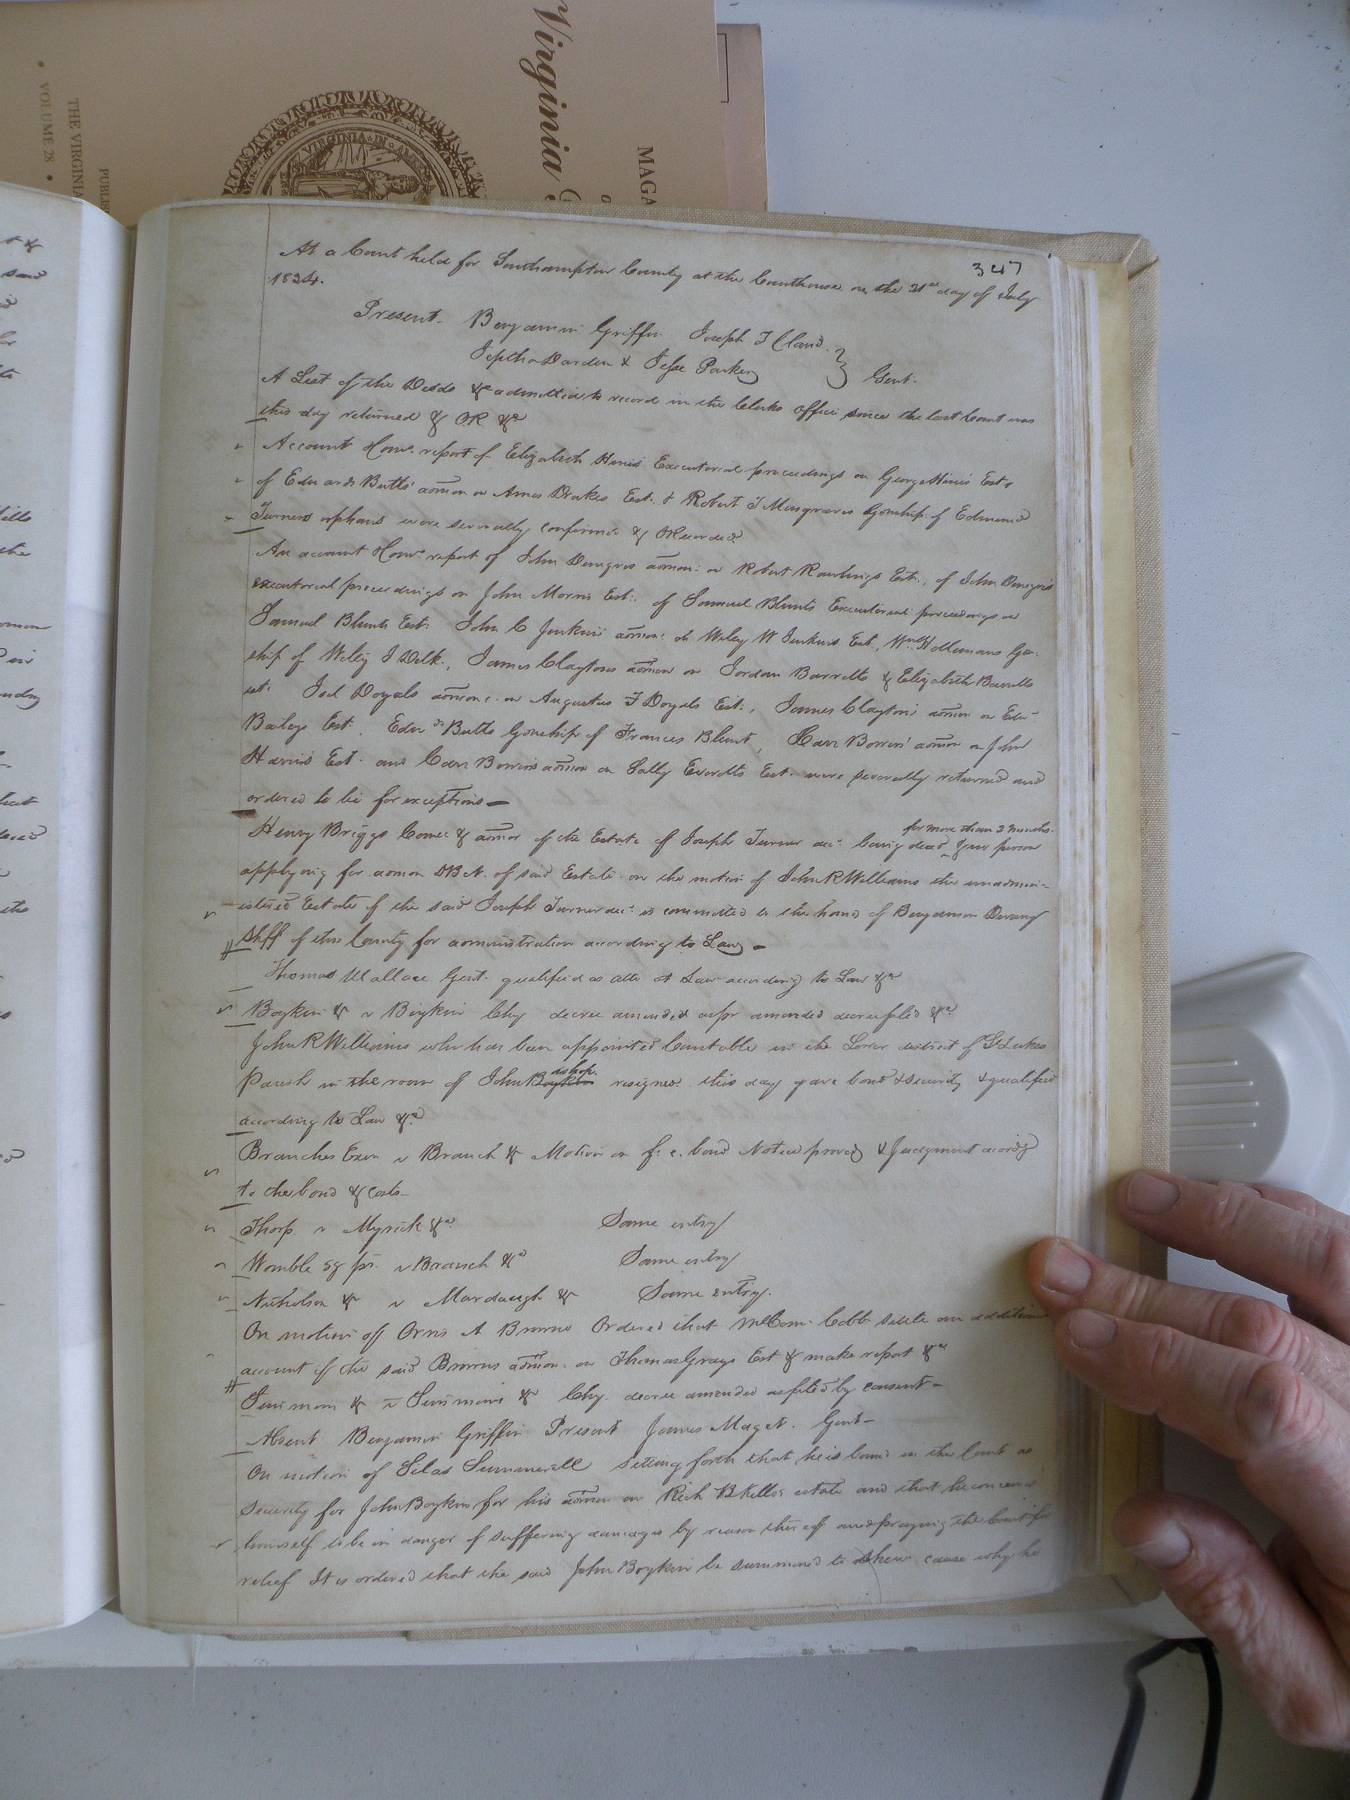 Virginia
MAGA
PUBLIS
THE VIRGINIA
• VOLUME 28 •
VIRGINIA IN AM
347
At a Court held for Southampton County at the Courthouse on the 21st day of July
1834.
Present. Benjamin Griffin Joseph T Claud
Jeptha Darden & Jesse Parker } Gent.
A List of the Deeds &c admitted to record in the Clerks office since the last Court was
this day returned & OR &c
Account Comrs report of Elizabeth Executorial proceedings on George Est,
of Edwards Butts' admon on Amos Drakes Est. & Robert J Musgraves Gonship of Edmund
Turners orphans were severally confirmed & ORecorded
An account Comrs report of John admon: on Robert Rawlings Est., of John
executorial proceedings on John Morris Est: of Samuel Blunts Executorial proceedings on
Samuel Blunts Est: John C Jenkins admon: on Wiley W Jenkins Est, Wm Hollemans Gon-
ship of Wiley J Delk, James Claytons admon on Jordan Barretts & Elizabeth Barretts
est. Joel Doyals admon: on Augustus F Doyals Est., James Clayton's admon on Edw
Baileys Est, Edwds Butts Gonship of Frances Blunt, Carr Bowers' admon on John
Harris's Est. and Carr Bowers admon on Sally Everetts Est. were severally returned and
ordered to lie for exceptions
for more than 3 months
Henry Briggs Comee & admor of the Estate of Joseph Turner dec. being dead & no person
applying for admon DBN. of said Estate on the motion of John R Williams the unadmin-
istered Estate of the said Joseph Turner dec. is committed to the hands of Benjamin
Shff of this County for administration according to Law
Thomas Wallace Gent. qualified as atto at Law according to Law &c
Boykin &c v Boykin Chy decree amended as pr amended decree filed &c
John R Williams who has been appointed Constable in the Lower district of St Lukes
bishop
Parish in the room of John Boykin resigned this day gave bond & security & qualified
according to Law &c
Branches Exon v Branch &c Motion on f. c. bond Notice proved & Judgment accordg
to the bond & costs
Thorp v Myrick &c Same entry
Womble sg pr. v Branch &c Same entry
Nicholson &c v Murdaugh &c Same entry.
On motion of Orris A Browne Ordered that Cobb settle an additional
account of the said Browns admon. on Thomas Grays Est & make report &c
Simmons &c v Simmons &c Chy. decree amended as filed by consent
Absent Benjamin Griffin Present James Maget. Gent
On motion of Silas Summerell setting forth that he is bound in the Court as
Security for John Boykin for his admon on Rich B Kello's estate and that he conceives
himself to be in danger of suffering damages by reason thereof and praying the Court for
relief It is ordered that the said John Boykin be summoned to shew cause why he